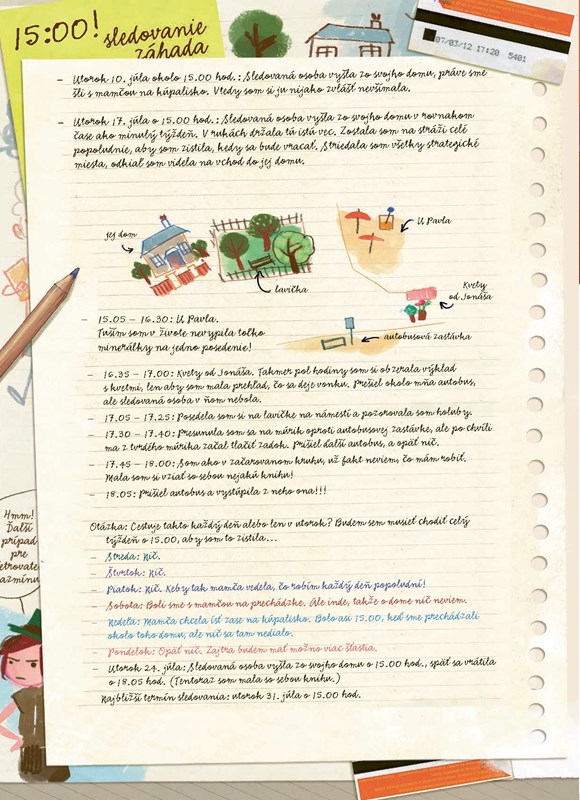 15:00! sledovanie
záhada
07/03/12 17:20 5401
– Utorok 10. júla okolo 15.00 hod.: Sledovaná osoba vyšla zo svojho domu, práve sme
šli s mamčou na kúpalisko. Vtedy som si ju nijako zvlášť nevšímala.
– Utorok 17. júla o 15.00 hod.: Sledovaná osoba vyšla zo svojho domu v rovnakom
čase ako minulý týždeň. V rukách držala tú istú vec. Zostala som na stráži celé
popoludnie, aby som zistila, kedy sa bude vracať. Striedala som všetky strategické
miesta, odkiaľ som videla na vchod do jej domu.
jej dom
lavička
U Pavla
Kvety
od Jonáša
autobusová zastávka
– 15.05 – 16.30: U Pavla.
Tuším som v živote nevypila toľko
minerálky na jedno posedenie!
– 16.35 – 17.00: Kvety od Jonáša. Takmer pol hodiny som si obzerala výklad
s kvetmi, len aby som mala prehľad, čo sa deje vonku. Prešiel okolo mňa autobus,
ale sledovaná osoba v ňom nebola.
– 17.05 – 17.25: Posedela som si na lavičke na námestí a pozorovala som holuby.
– 17.30 – 17.40: Presunula som sa na múrik oproti autobusovej zastávke, ale po chvíli
ma z tvrdého múrika začal tlačiť zadok. Prišiel ďalší autobus, a opäť nič.
– 17.45 – 18.00: Som ako v začarovanom kruhu, už fakt neviem, čo mám robiť.
Mala som si vziať so sebou nejakú knihu!
– 18.05: Prišiel autobus a vystúpila z neho ona!!!
Otázka: Cestuje takto každý deň alebo len v utorok? Budem sem musieť chodiť celý
týždeň o 15.00, aby som to zistila...
– Streda: Nič.
– Štvrtok: Nič.
– Piatok: Nič. Keby tak mamča vedela, čo robím každý deň popoludní!
– Sobota: Boli sme s mamčou na prechádzke, ale inde, takže o dome nič neviem.
– Nedeľa: Mamča chcela ísť zase na kúpalisko. Bolo asi 15.00, keď sme prechádzali
okolo toho domu, ale nič sa tam nedialo.
– Pondelok: Opäť nič. Zajtra budem mať možno viac šťastia.
– Utorok 24. júla: Sledovaná osoba vyšla zo svojho domu o 15.00 hod., späť sa vrátila
o 18.05 hod. (Tentoraz som mala so sebou knihu.)
Najbližší termín sledovania: utorok 31. júla o 15.00 hod.
Hmm!
Ďalší
prípad
pre